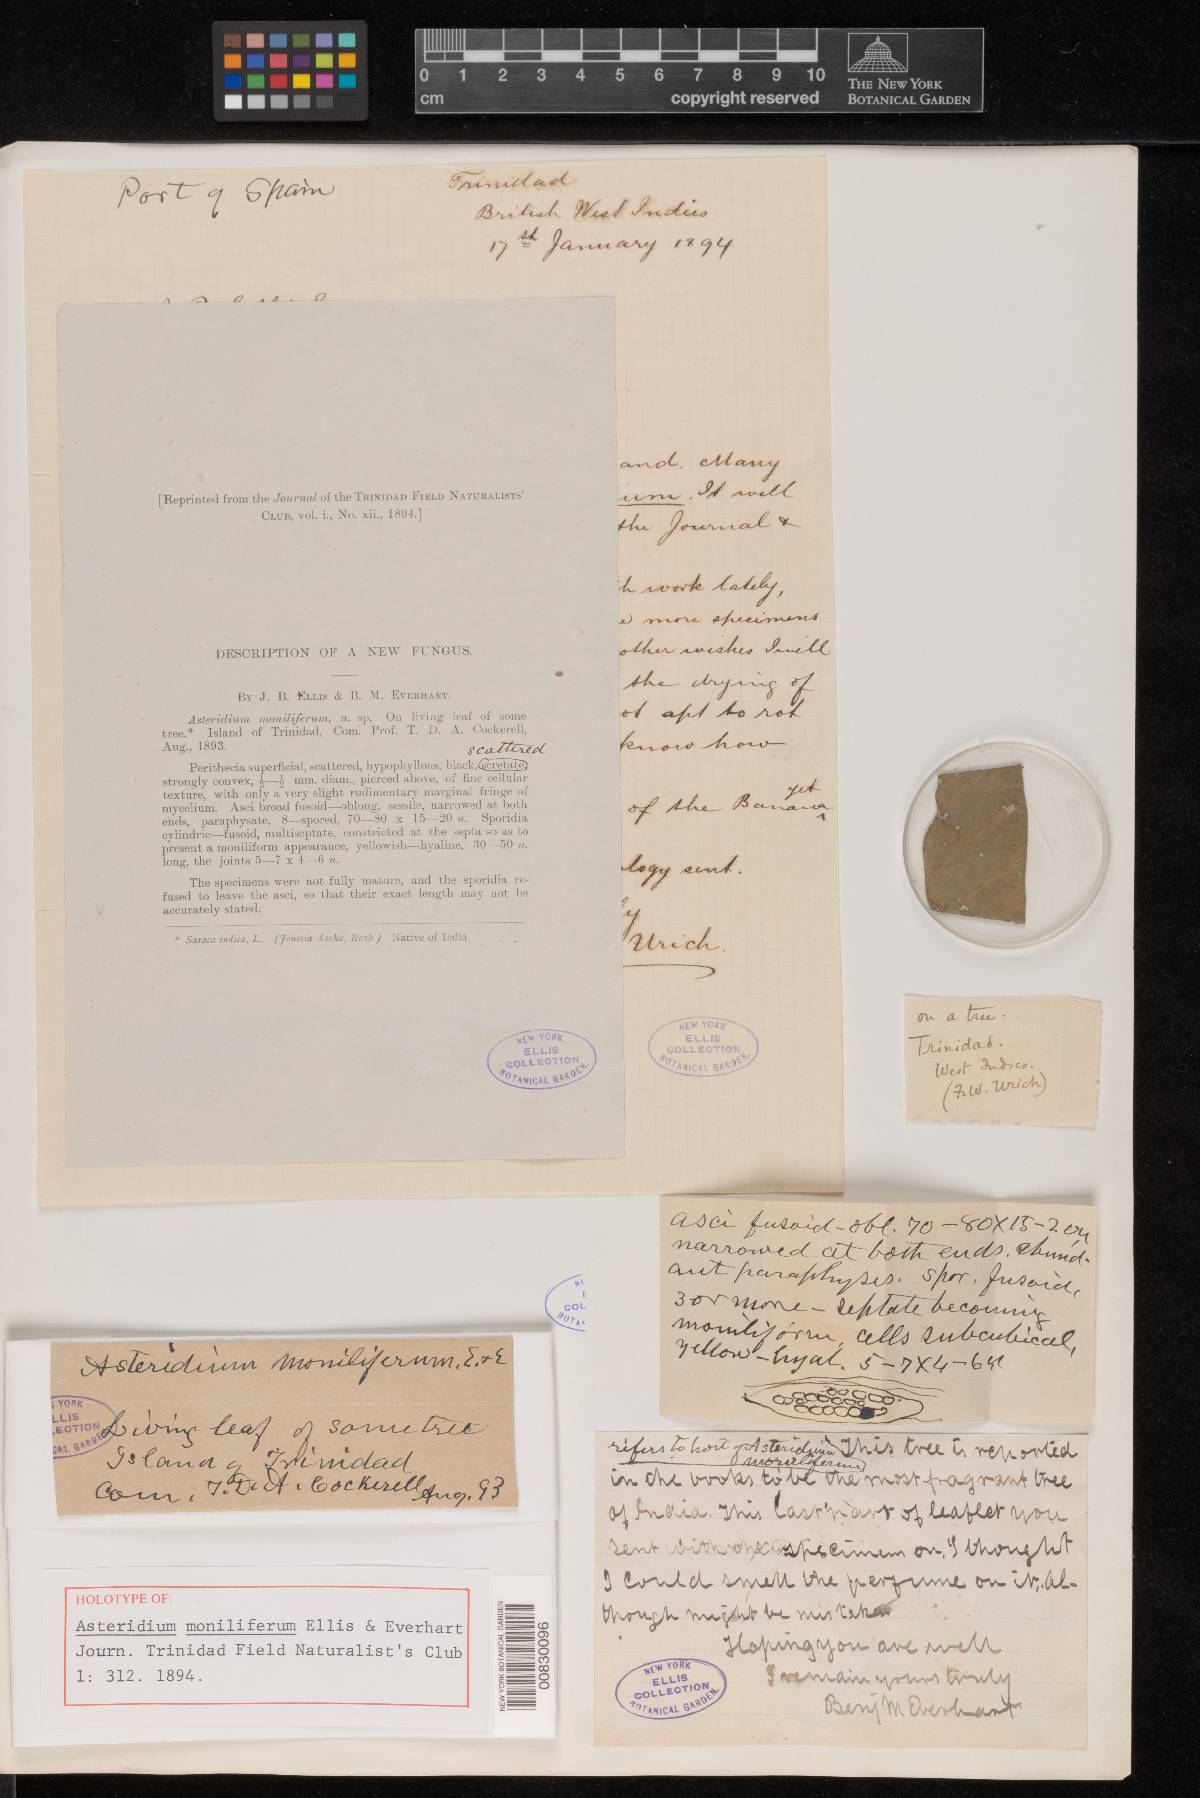 0 1 2 3 4 5 6 7 8 9 10
cm
copyright reserved
THE NEW YORK
BOTANICAL GARDEN
Port of Spain
Trinidad
British West Indies
17th January 1894
and. Many
ium. It will
the Journal &
h work lately,
e more specimens
other wishes I will
the drying of
ot apt to rot
know how
yet
of the Banana
ology sent.
ly
Urich.
[Reprinted from the Journal of the TRINIDAD FIELD NATURALISTS'
CLUB, vol. i., No. xii., 1894.]
DESCRIPTION OF A NEW FUNGUS.
BY J. B. ELLIS & B. M. EVERHART.
Asteridium moniliferum, n. sp. On living leaf of some
tree.* Island of Trinidad, Com. Prof. T. D. A. Cockerell,
Aug., 1893.
scattered
Perithecia superficial, scattered, hypophyllous, black, scretate,
strongly convex, ⅓—½ mm. diam., pierced above, of fine cellular
texture, with only a very slight rudimentary marginal fringe of
mycelium. Asci broad fusoid—oblong, sessile, narrowed at both
ends, paraphysate, 8—spored, 70—80 x 15—20 u. Sporidia
cylindric—fusoid, multiseptate, constricted at the septa so as to
present a moniliform appearance, yellowish—hyaline, 30—50 u.
long, the joints 5—7 x 4—6 u.
The specimens were not fully mature, and the sporidia re-
fused to leave the asci, so that their exact length may not be
accurately stated.
* Saraca indica, L. (Jonesia Asoka, Roxb.) Native of India.
NEW YORK
ELLIS
COLLECTION
BOTANICAL GARDEN.
NEW YORK
ELLIS
COLLECTION
BOTANICAL GARDEN.
on a tree.
Trinidad.
West Indies.
(F.W. Urich)
asci fusoid-obl. 70-80X15-20u
narrowed at both ends. abund-
ant paraphyses. spor. fusoid,
3 or more-septate becoming
moniliform, cells subcubical,
yellow-hyal. 5-7X4-6u
COL
BOTA
Asteridium moniliferum. E.&E
YORK
ELLIS
LECTION
CAL GARDEN
Living leaf of some tree
Island of Trinidad
Com. T.D.A. Cockerell Aug. 93
HOLOTYPE OF:
Asteridium moniliferum Ellis & Everhart
Journ. Trinidad Field Naturalist's Club
1: 312. 1894.
NEW YORK BOTANICAL GARDEN
00830096
refers to host of Asteridium moniliferum This tree is reported
in the books to be the most fragrant tree
of India. This last part of leaflet you
sent with the specimen on, I thought
I could smell the perfume on it, Al-
though might be mistaken
Hoping you are well
I remain yours truly
Benj M Everhart
NEW YORK
ELLIS
COLLECTION
BOTANICAL GARDEN.